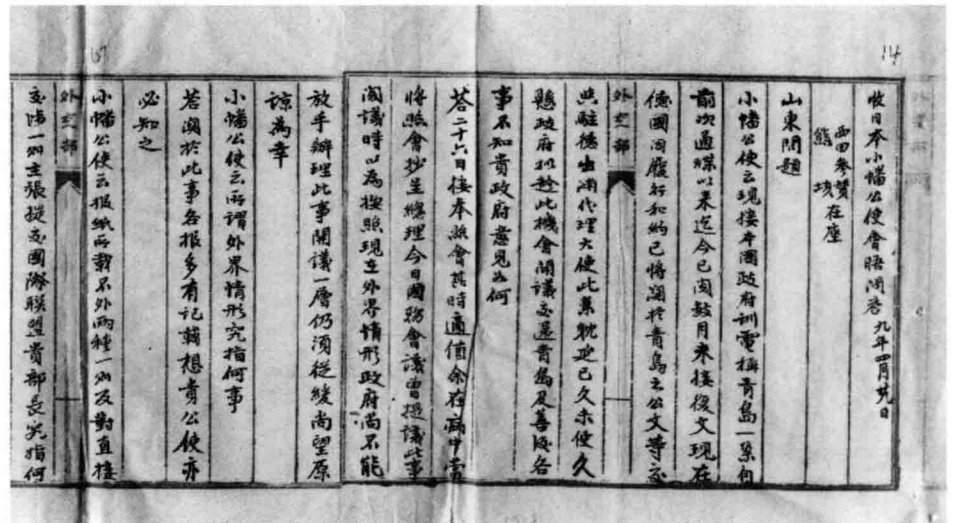 14
收日本小幡公使會晤問答 九年四月廿九日
西田參贊在座
熊垓
山東問題
小幡公使云現接本國政府訓電稱青島一案向
前次通牒以來迄今已閱數月未接復文現在
德國因履行和約已將關於青島之公文等交
與駐德出淵代理大使此案耽延已久未便久
懸政府擬趁此機會開議交還青島及善後各
事不知貴政府意見如何
答二十六日接奉照會其時適值余在病中當
將照會抄呈總理今日國務會議曾提議此事
閣議時以為按照現在外界情形政府尚不能
放手辦理此事開議一層仍須從緩尚望原
諒為幸
小幡公使云所謂外界情形究指何事
答關於此事各報多有記載想貴公使亦
必知之
小幡公使云報紙所載不外兩種一則反對直接
交涉一則主張提交國際聯盟貴部長究指何
外交部
外交部